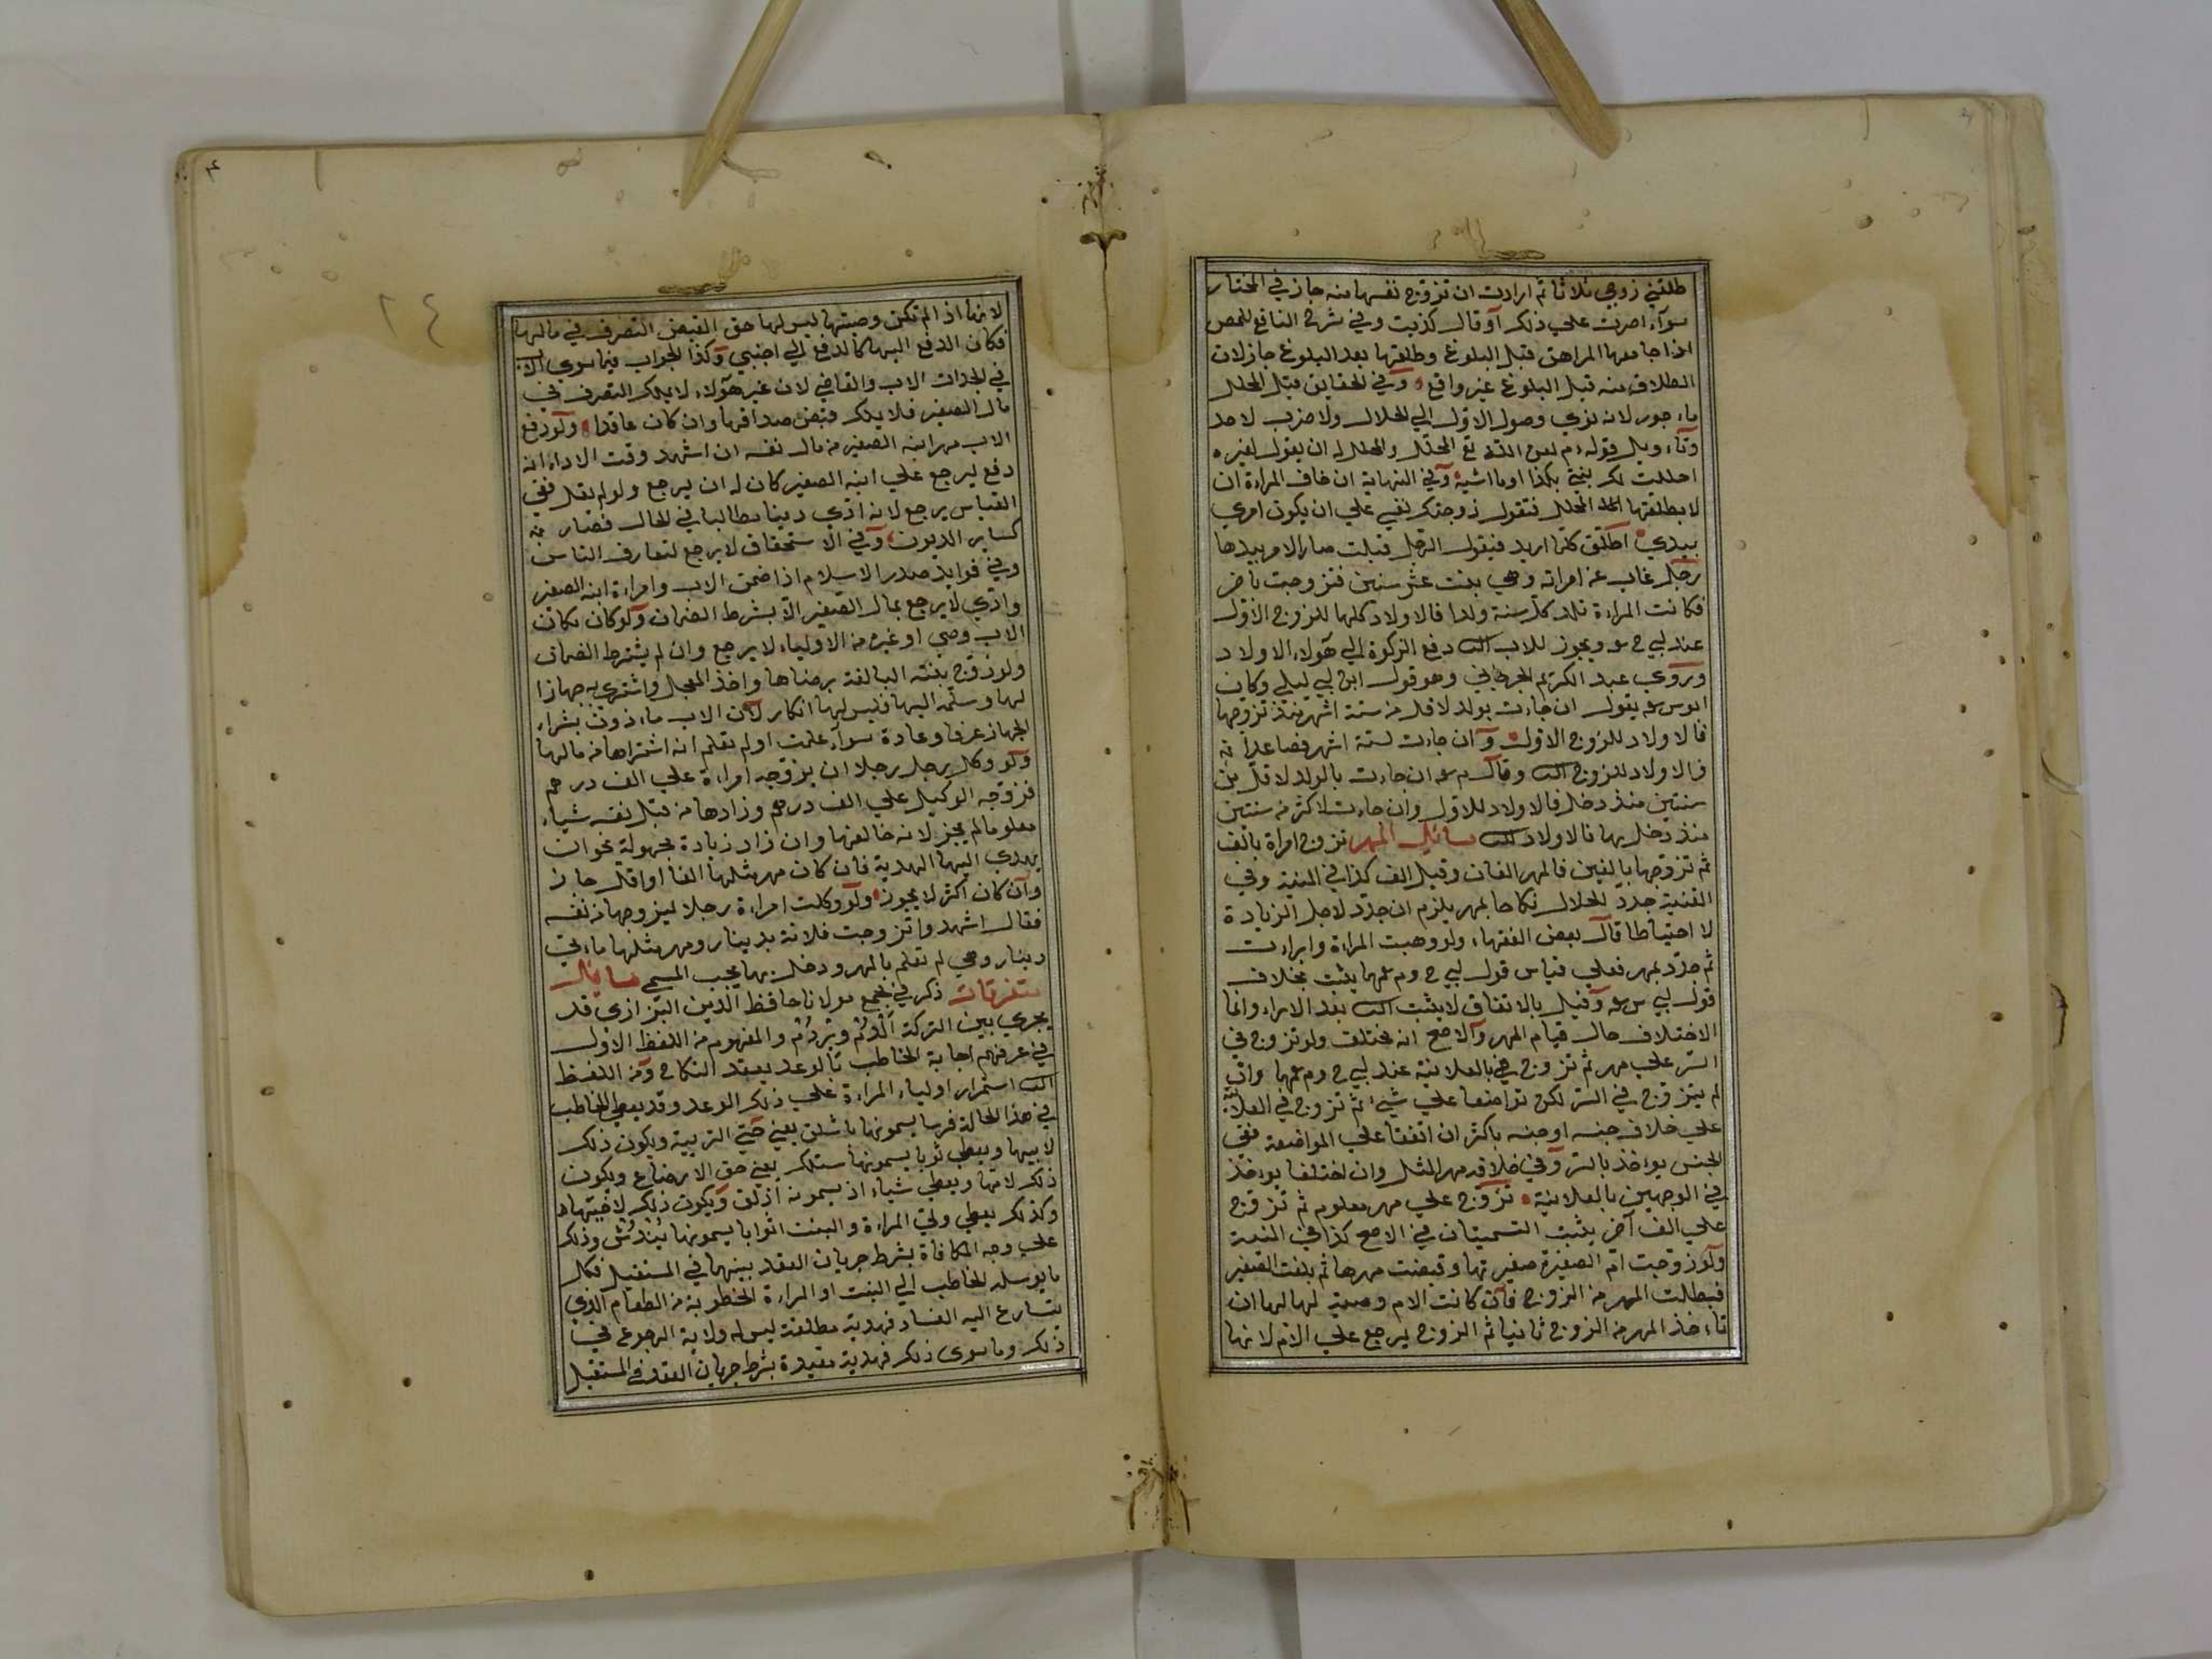 طلقني زوجي ثلاثا ثم ارادت ان تزوج نفسها منه جاز في المختار
سوآء اصرت علي ذلك أو قال كذبت وفي شرح النافع للمص
اذا جامعها المراهق قبل البلوغ وطلقها بعد البلوغ جاز لان
الطلاق منه قبل البلوغ غير واقع وفي الحقايق قيل المحلل
ماءجور لانه نوي وصول الاول الي الحلال ولا ضرب لاحد
وتاءويل قوله ءم لعن الله تع المحلل والمحلل له ان يقول لغيره
احللت لك بنتي بكذا او ما اشبه وفي النهاية ان خاف المراءة ان
لا يطلقها المحلل فتقول زوجتك نفسي علي ان يكون امري
بيدي اطلق كلما اريد فيقول الرجل قبلت صار الامر بيدها
رجل غاب عن امراته وهي بنت عشر سنين فتزوجت باخر
فكانت المراءة تلد كل سنة ولدا فالاولاد كلها للزوج الاول
عند ابي ح عه ويجوز للاب الثا دفع الزكوة الي هؤلاء الاولاد
وروي عبد الكريم الجرجاني وهو قول ابن ابي ليلي وكان
ابو س عه يقول ان جاءت بولد لاقل من ستة اشهر منذ تزوجها
فالاولاد للزوج الاول وان جاءت لستة اشهر فصاعدا منه
فالاولاد للزوج الثا وقال م عه ان جاءت بالولد لاقل من
سنتين منذ دخل فالاولاد للاول وان جاءت لاكثر من سنتين
منذ دخل بها فالاولاد للثا مسائل المهر تزوج امراة بالف
ثم تزوجها بالفين فالمهر الفان وقيل الف كذا في المنية وفي
القنية جدد للحلال نكاحا بمهر يلزم ان جدد لاجل الزيادة
لا احتياطا قال بعض الفقهاء ولو وهبت المراءة وابراءت
ثم جدد بمهر فعلي قياس قول ابي ح وم عهما يثبت بخلاف
قول ابي س عه وقيل بالاتفاق لا يثبت الثا بعد الابراء وانما
الاختلاف حال قيام المهر والاصح انه مختلف ولو تزوج في
السر علي مهر ثم تزوج هي بالعلانية عند ابي ح وم عهما وان
لم يتزوج في السر لكن تواضعا علي شيء ثم تزوج في العلانية
علي خلاف جنسه او جنسه باكثر ان اتفقا علي المواضعة ففي
الجنس يواخذ بالسر وفي خلافه مهر المثل وان اختلفا يواخذ
في الوجهين بالعلانية تزوج علي مهر معلوم ثم تزوج
علي الف آخر يثبت التسميتان في الاصح كذا في المنية
ولو زوجت ام الصغيرة صغيرتها وقبضت مهرها ثم بلغت الصغير
فبطالت المهر من الزوج فان كانت الام وصية لها لها ان
تاءخذ المهر من الزوج ثانيا ثم الزوج يرجع علي الام لانها
لانها اذا لم تكن وصيتها ليس لها حق القبض التصرف في مالها
فكان الدفع اليها كالدفع الي اجنبي وكذا الجواب فيما سوي الاب
في الجدات الاب والقاضي لان غير هؤلاء لا يملك التصرف في
مال الصغير فلا يملك قبض صداقها وان كان عاقدا ولو دفع
الاب مهر ابنه الصغير من مال نفسه ان اشهد وقت الاداء انه
دفع ليرجع علي ابنه الصغير كان له ان يرجع ولو لم يقل ففي
القياس يرجع لانه ادي دينا مطالبا في الحال فصار منه
كساير الديون وفي الاستحقاق لا يرجع لتعارف الناس
وفي فوايد صدر الاسلام اذا ضمن الاب وامراءة ابنه الصغير
وادي لا يرجع بمال الصغير الا بشرط الضمان ولو كان مكان
الاب وصي او غيره من الاولياء لا يرجع وان لم يشترط الضمان
ولو زوج بنته البالغة برضاها واخذ المعجل واشتري به جهازا
لها وسلمه اليها فليس لها انكار لان الاب ماءذون بشراء
الجهاز عرفا وعادة سوآء علمت او لم تعلم انه اشتراها من مالها
ولو وكل رجل رجلا ان يزوجه امراءة علي الف درهم
فزوجه الوكيل علي الف درهم وزادها من قبل نفسه شياء
معلوما لم يجز لانه خالفها وان زاد زيادة مجهولة نحو ان
يهدي اليها الهدية فان كان مهر مثلها الفا او اقل جاز
وان كان اكثر لا يجوز ولو وكلت امراءة رجلا ليزوجها من نفسه
فقال اشهدوا تزوجت فلانة بدينار ومهر مثلها ماءتي
دينار وهي لم تعلم بالمهر ودخل بها يجب المسمي مسائل
متفرقات ذكر في مجمع مولانا حافظ الدين البزازي قد
يجري بين التركة الدم وبردم والمفهوم من اللفظ الاول
في عرفهم اجابة المخاطب بالوعد بعقد النكاح ومن اللفظ
الثا استمرار اولياء المراءة علي ذلك الوعد وقد يعطي الخاطب
في هذا الحالة فرسا يسمونها باشلق يعني حق التربية ويكون ذلك
لابيها ويعطي ثوبا يسمونها ستلك يعني حق الارضاع ويكون
ذلك لامها ويعطي شياء اذ يسمونه اذلق ويكون ذلك لاختها
وكذلك يعطي ولي المراءة والبنت اثوابا يسمونها يندش وذلك
علي وجه المكافاة بشرط جريان العقد بينهما في المستقبل فكل
ما يوسله الخاطب الي البنت او المراءة المخطوبة من الطعام الذي
يتسارع اليه الفساد فهدية مطلقة ليس له ولاية الرجوع في
ذلك وما سوي ذلك فهدية مقيدة بشرط جريان العقد في المستقبل
٢٤